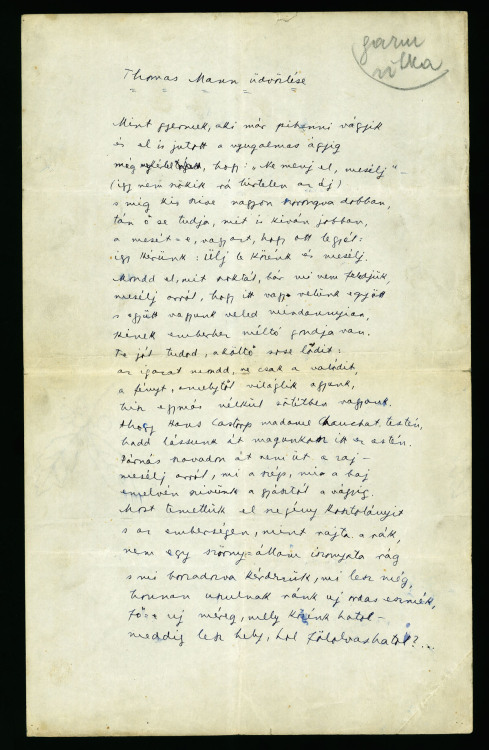 Thomas Mann üdvözlése
Mint gyermek, aki már pihenni vágyik
és el is jutott a nyugalmas ágyig
még hogy: „Ne menj el, mesélj" –
(igy nem szökik rá hirtelen az éj)
s mig kis szive nagyon szorongva dobban,
tán ő se tudja, mit is kiván jobban,
a mesét-e, vagy azt, hogy ott legyél:
igy kérünk: Ülj le közénk és mesélj.
Mondd el, mit szoktál, bár mi nem feledjük,
mesélj arról, hogy itt vagy velünk együtt
s együtt vagyunk veled mindannyian,
kinek emberhez méltó gondja van.
Te jól tudod, a költő sose lódit:
az igazat mondd, ne csak a valódit,
a fényt, amelytől világlik agyunk,
hisz egymás nélkül sötétben vagyunk.
Ahogy Hans Castorp madame Chauchat testén,
hadd lássunk át magunkon itt ez estén.
Párnás szavadon át nem üt a zaj –
mesélj arról, mi a szép, mi a baj
emelvén szivünk a gyásztól a vágyig.
Most temettük el szegény Kosztolányit
s az emberségen, mint rajta a rák,
nem egy szörny-állam iszonyata rág
s mi borzadozva kérdezzük, mi lesz még,
honnan uszulnak ránk uj ordas eszmék,
fő-e uj méreg, mely közénk hatol –
meddig lesz hely, hol fölolvashatol?...